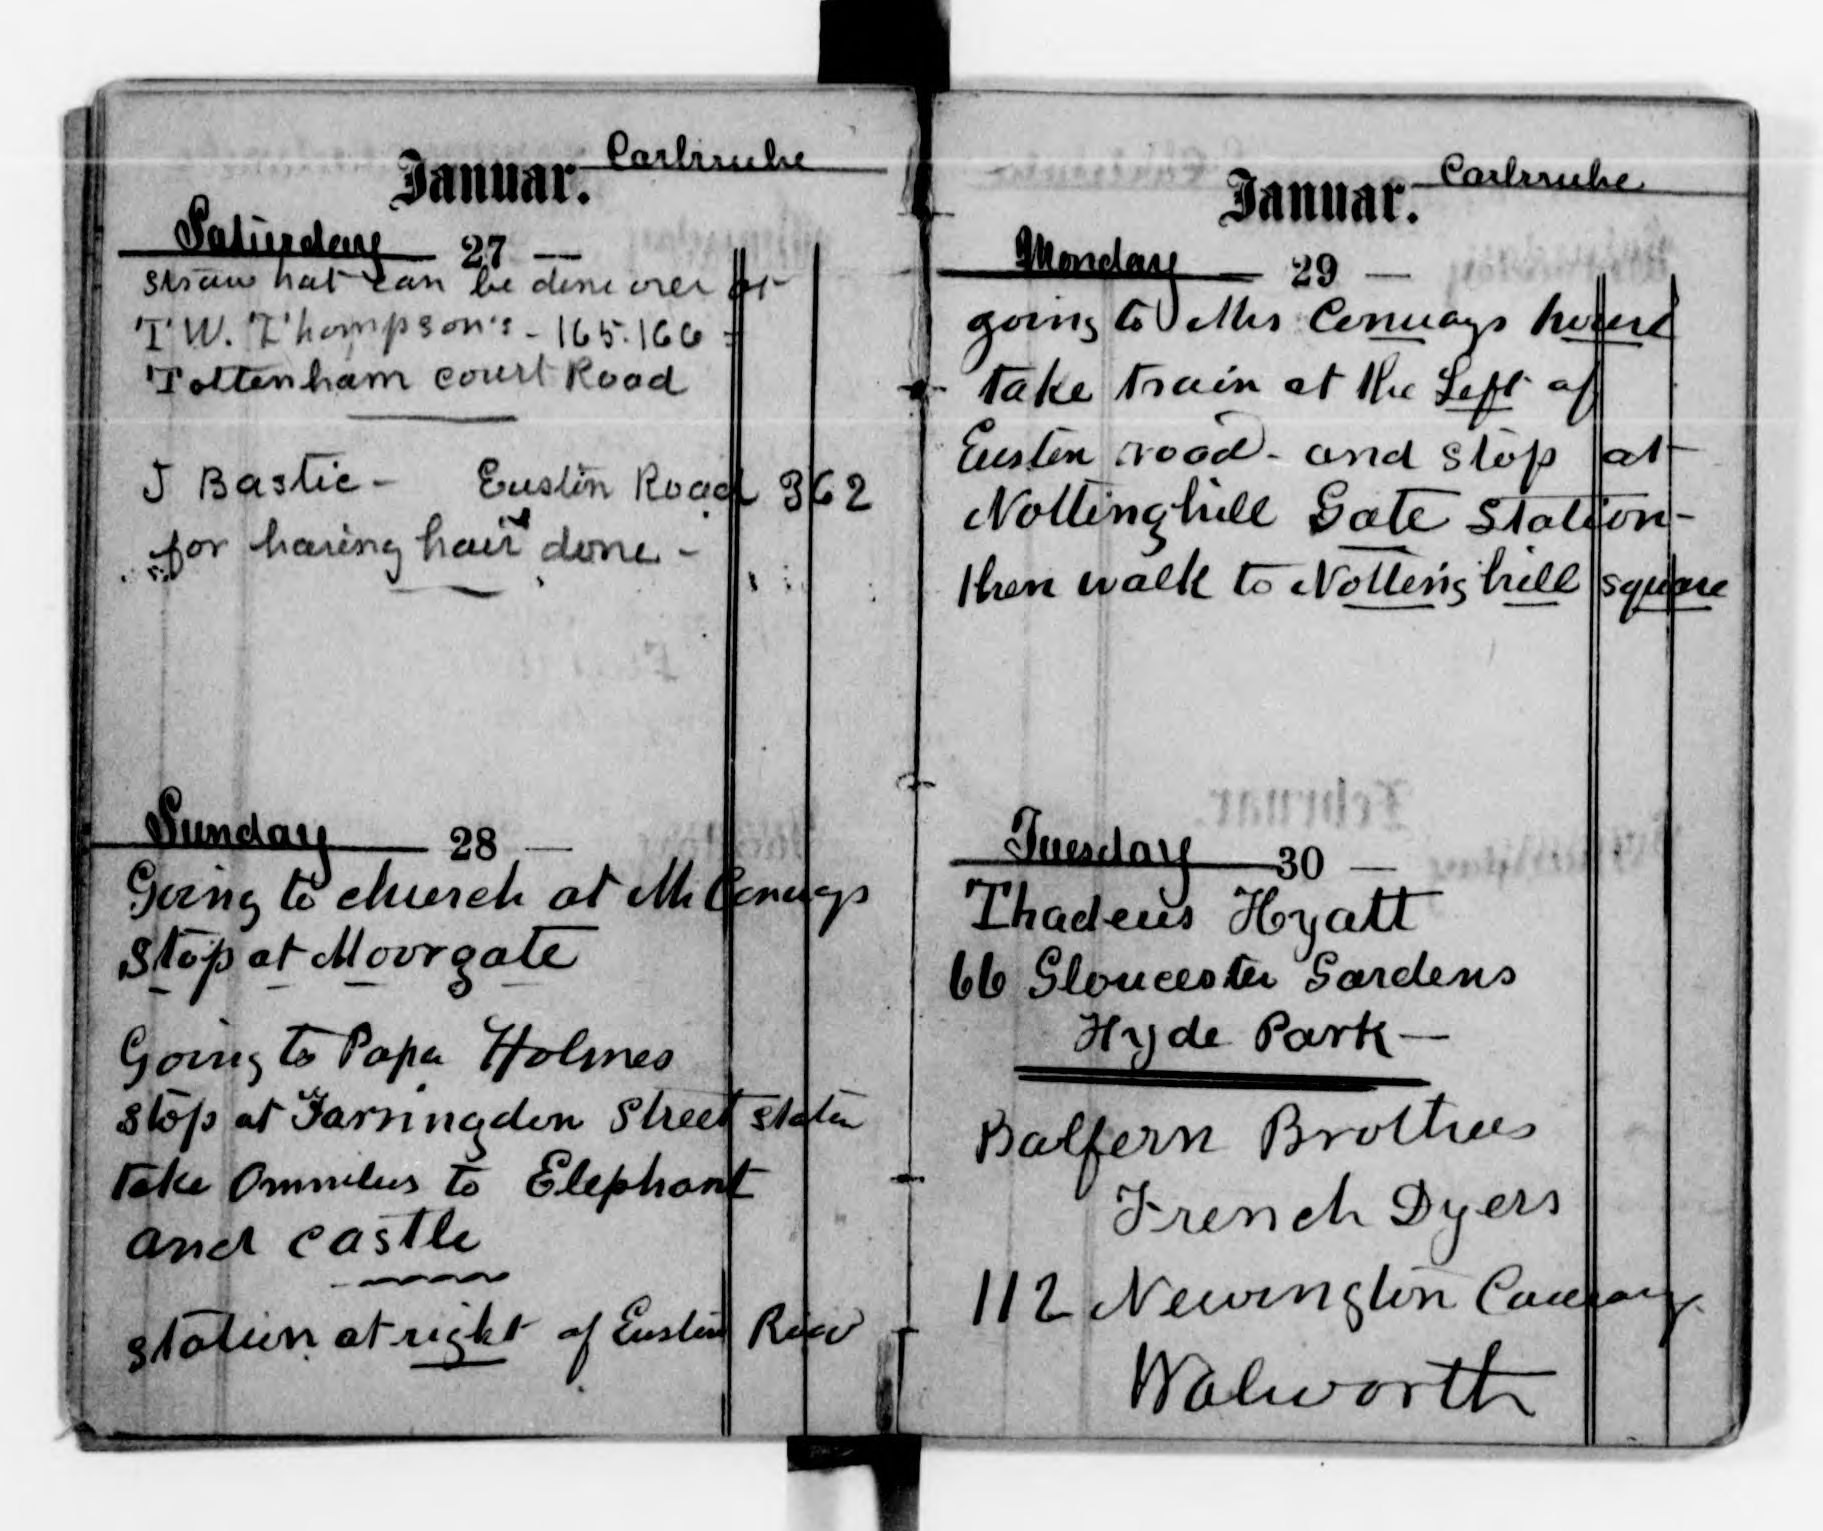 Januar. Carlsruhe
Saturday 27 —
straw hat can be done over at
T W. Thompson's - 165.166 -
Tottenham court Road
J Bastie - Euston Road 362
for having hair done -
Sunday 28 —
Going to church at Mr Conways
stop at Moorgate
Going to Papa Holmes
stop at Farringdon Street station
take Omnibus to Elephant
and castle
station at right of Euston
Januar. Carlsruhe
Monday 29 —
going to Mrs Conways house
take train at the Left of
Euston road - and stop at
Nottinghill Gate Station -
then walk to Notting hill square
Tuesday 30 —
Thadeus Hyatt
66 Gloucester Gardens
Hyde Park —
Balfern Brothers
French Dyers
112 Newington Causway
Walworth